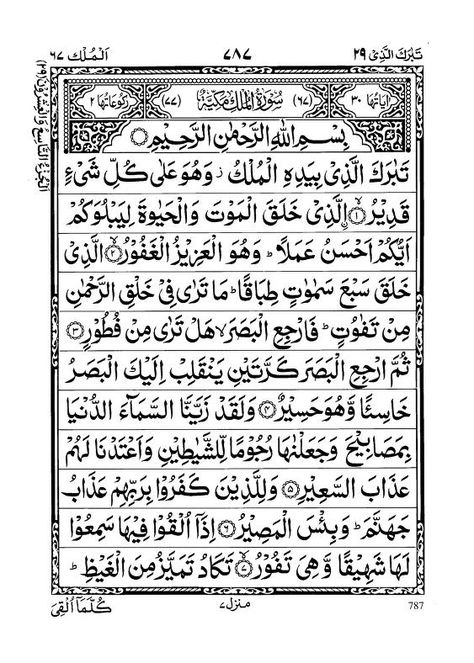 تَبٰرَكَ الَّذِىْ ٢٩
٧٨٧
اَلْمُلْك ٦٧
اٰيَاتُهَا ٣٠
(٦٧) سُوْرَةُ الْمُلْكِ مَكِّيَّةٌ (٧٧)
رُكُوْعَاتُهَا ٢
بِسْمِ اللّٰهِ الرَّحْمٰنِ الرَّحِيْمِ
تَبٰرَكَ الَّذِىْ بِيَدِهِ الْمُلْكُ ز وَهُوَ عَلٰى كُلِّ شَىْءٍ
قَدِيْرُ ۨ ۙ﴿١﴾ الَّذِىْ خَلَقَ الْمَوْتَ وَالْحَيٰوةَ لِيَبْلُوَكُمْ
اَيُّكُمْ اَحْسَنُ عَمَلًا ؕ وَهُوَ الْعَزِيْزُ الْغَفُوْرُ ۙ﴿٢﴾ الَّذِىْ
خَلَقَ سَبْعَ سَمٰوٰتٍ طِبَاقًا ؕ مَا تَرٰى فِىْ خَلْقِ الرَّحْمٰنِ
مِنْ تَفٰوُتٍ ؕ فَارْجِعِ الْبَصَرَ ۙ هَلْ تَرٰى مِنْ فُطُوْرٍ ﴿٣﴾
ثُمَّ ارْجِعِ الْبَصَرَ كَرَّتَيْنِ يَنْقَلِبْ اِلَيْكَ الْبَصَرُ
خَاسِئًا وَّهُوَ حَسِيْرٌ ﴿٤﴾ وَلَقَدْ زَيَّنَّا السَّمَآءَ الدُّنْيَا
بِمَصَابِيْحَ وَجَعَلْنٰهَا رُجُوْمًا لِّلشَّيٰطِيْنِ وَاَعْتَدْنَا لَهُمْ
عَذَابَ السَّعِيْرِ ﴿٥﴾ وَلِلَّذِيْنَ كَفَرُوْا بِرَبِّهِمْ عَذَابُ
جَهَنَّمَ ؕ وَبِئْسَ الْمَصِيْرُ ﴿٦﴾ اِذَآ اُلْقُوْا فِيْهَا سَمِعُوْا
لَهَا شَهِيْقًا وَّهِىَ تَفُوْرُ ۙ﴿٧﴾ تَكَادُ تَمَيَّزُ مِنَ الْغَيْظِ ؕ
787
منزل ٧
كُلَّمَآ اُلْقِىَ
اَلْجُزْءُ التَّاسِعُ وَالْعِشْرُوْنَ (٢٩)